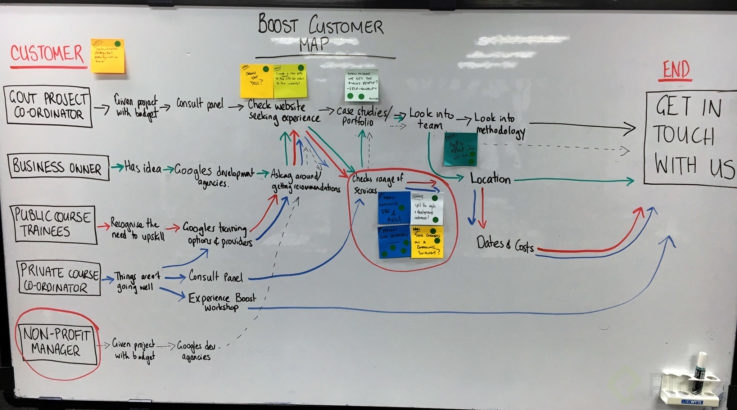 BOOST CUSTOMER
MAP
CUSTOMER
END
GOVT PROJECT
CO-ORDINATOR
Given project
with budget
Consult panel
Check website
seeking experience
Case studies/
portfolio
Look into
team
Look into
methodology
GET IN
TOUCH
WITH US
BUSINESS OWNER
Has idea
Googles development
agencies
Asking around/
getting recommendations
Checks range of
services
Location
PUBLIC COURSE
TRAINEES
Recognise the
need to upskill
Googles training
options & providers
Dates & Costs
PRIVATE COURSE
CO-ORDINATOR
Things aren't
going well
Consult Panel
Experience Boost
Workshop
NON-PROFIT
MANAGER
Given project
with budget
Googles dev
agencies